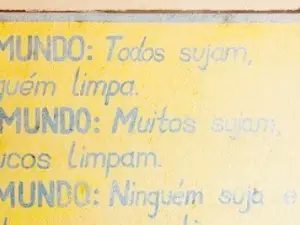 MUNDO: Todos sujam,
guém limpa.
MUNDO: Muitos sujam,
ucos limpam.
MUNDO: Ninguém suja e